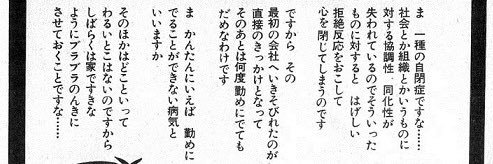 ま　一種の自閉症ですな……
社会とか組織とかいうものに
対する協調性　同化性が
失われているのでそういった
ものに対すると　はげしい
拒絶反応をおこして
心を閉じてしまうのです
ですから　その
最初の会社へいきそびれたのが
直接のきっかけとなって
そのあとは何度勤めにでても
だめなわけです
ま　かんたんにいえば　勤めに
でることができない病気と
いいますか
そのほかはどこといって
わるいとこはないのですから
しばらくは家ですきな
ようにブラブラのんきに
させておくことですな……